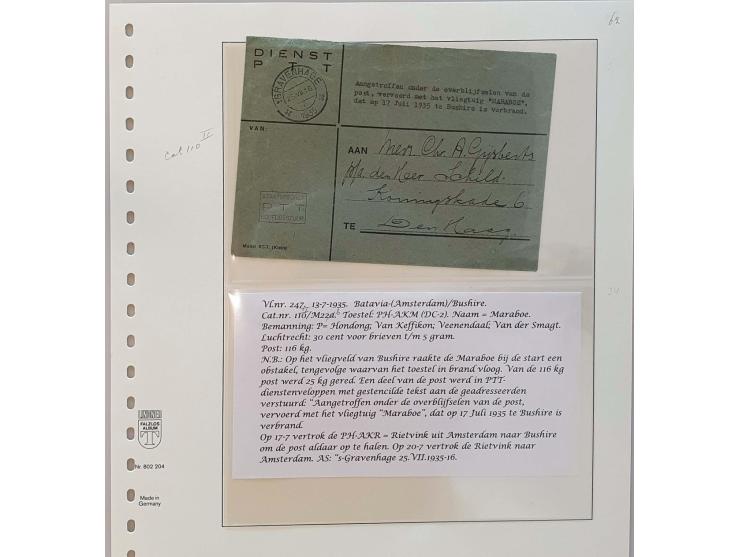 DIENST
PTT
'S GRAVENHAGE
1935
Aangetroffen onder de overblijfselen van de
post, vervoerd met het vliegtuig "MARABOE",
dat op 17 Juli 1935 te Bushire is verbrand.
VAN:
cat 110 II
AAN Mevr. Chr. A. Gijsberts
p/a. den Heer Schild.
Koninginnekade 6
TE Den Haag.
STAATSBEDRIJF
PTT
HOOFDBESTUUR
Vl.nr. 247, 13-7-1935. Batavia-(Amsterdam)/Bushire.
Cat.nr. 110/M22d. Toestel: PH-AKM (DC-2). Naam = Maraboe.
Bemanning: P= Hondong; Van Keffikon; Veenendaal; Van der Smagt.
Luchtrecht: 30 cent voor brieven t/m 5 gram.
Post: 116 kg.
N.B.: Op het vliegveld van Bushire raakte de Maraboe bij de start een
obstakel, tengevolge waarvan het toestel in brand vloog. Van de 116 kg
post werd 25 kg gered. Een deel van de post werd in PTT-
dienstenveloppen met gestencilde tekst aan de geadresseerden
verstuurd: "Aangetroffen onder de overblijfselen van de post,
vervoerd met het vliegtuig "Maraboe", dat op 17 Juli 1935 te Bushire is
verbrand.
Op 17-7 vertrok de PH-AKR = Rietvink uit Amsterdam naar Bushire
om de post aldaar op te halen. Op 20-7 vertrok de Rietvink naar
Amsterdam. AS: "s-Gravenhage 25.VII.1935-16.
LINDNER
FALZLOS
ALBUM
T
Nr. 802 204
Made in
Germany